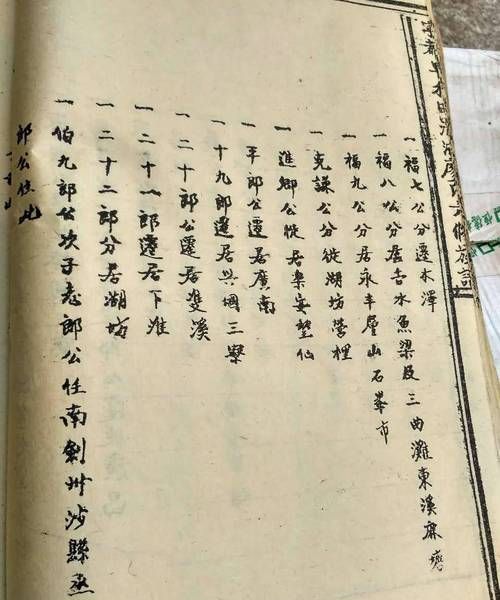 一福七公分遷木澤
一福八公分居吉水魚梁及三曲灘東溪麻
一福九公分居永丰層山石峯市
一克謙公分徙湖坊營裡
一進卿公徙居樂安望仙
一平郎公遷居廣南
一十九郎遷居興國三寮
一二十郎公遷居雙溪
一二十一郎遷居下淮
一二十二郎分居湖坊
一伯九郎公次子志郎公任南劍州沙縣丞
郎公住此